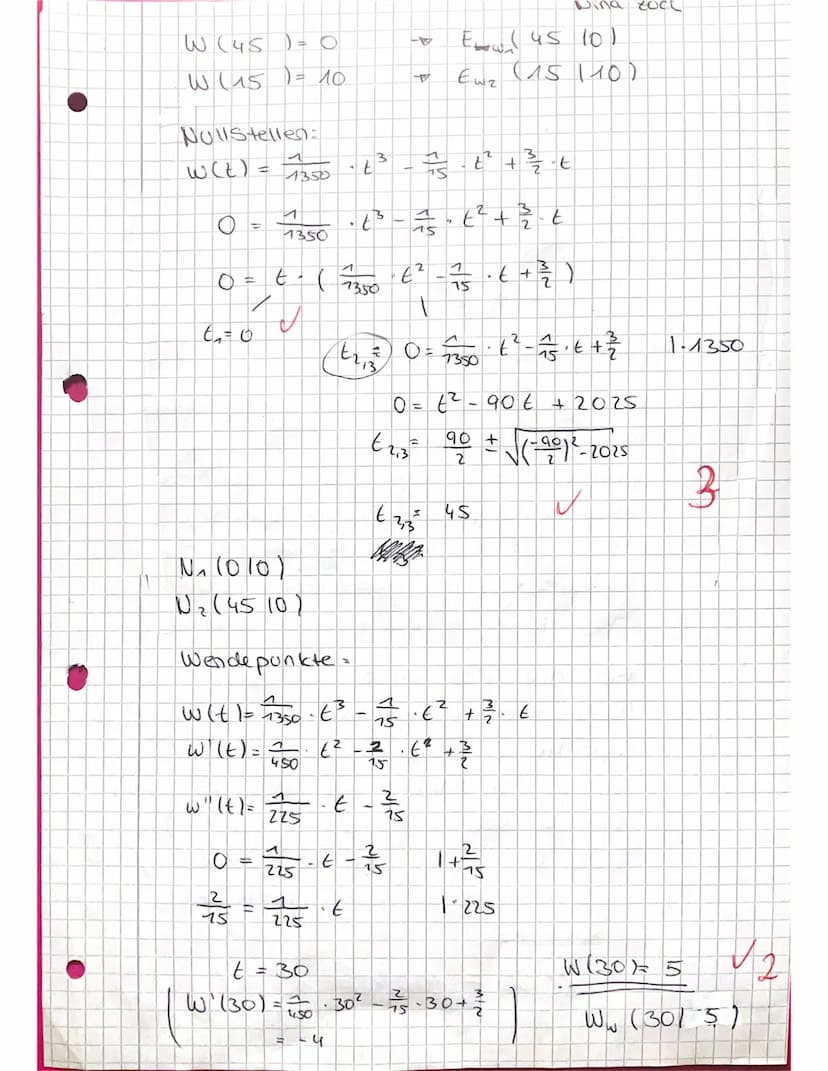 Nina Zoch
W(45 )=0 → E_w1( 45 10)
W(15 )= 10 → E_w2 (15 | 10)
Nullstellen:
W(t) = 1/1350 · t³ - 1/15 · t² + 3/2 · t
0 = 1/1350 · t³ - 1/15 · t² + 3/2 · t
0 = t · ( 1/1350 · t² - 1/15 · t + 3/2 )
t₁= 0 ✓
t₂,₃ = 0 = 1/1350 · t² - 1/15 · t + 3/2 | · 1350
0 = t² - 90t + 2025
t₂,₃ = 90/2 ± √((-90/2)² - 2025
t₂,₃ = 45 ✓ 3
N₁ (0|0)
N₂ (45 |0)
Wendepunkte:
W(t)= 1/1350 · t³ - 1/15 · t² + 3/2 · t
W'(t)= 1/450 · t² - 2/15 · t + 3/2
W''(t)= 1/225 · t - 2/15
0 = 1/225 · t - 2/15 | + 2/15
2/15 = 1/225 · t | · 225
t = 30 W(30)= 5 ✓ 2
( W'(30) = 1/450 · 30² - 2/15 · 30 + 3/2 ) W_w (30/ 5)
= - 4